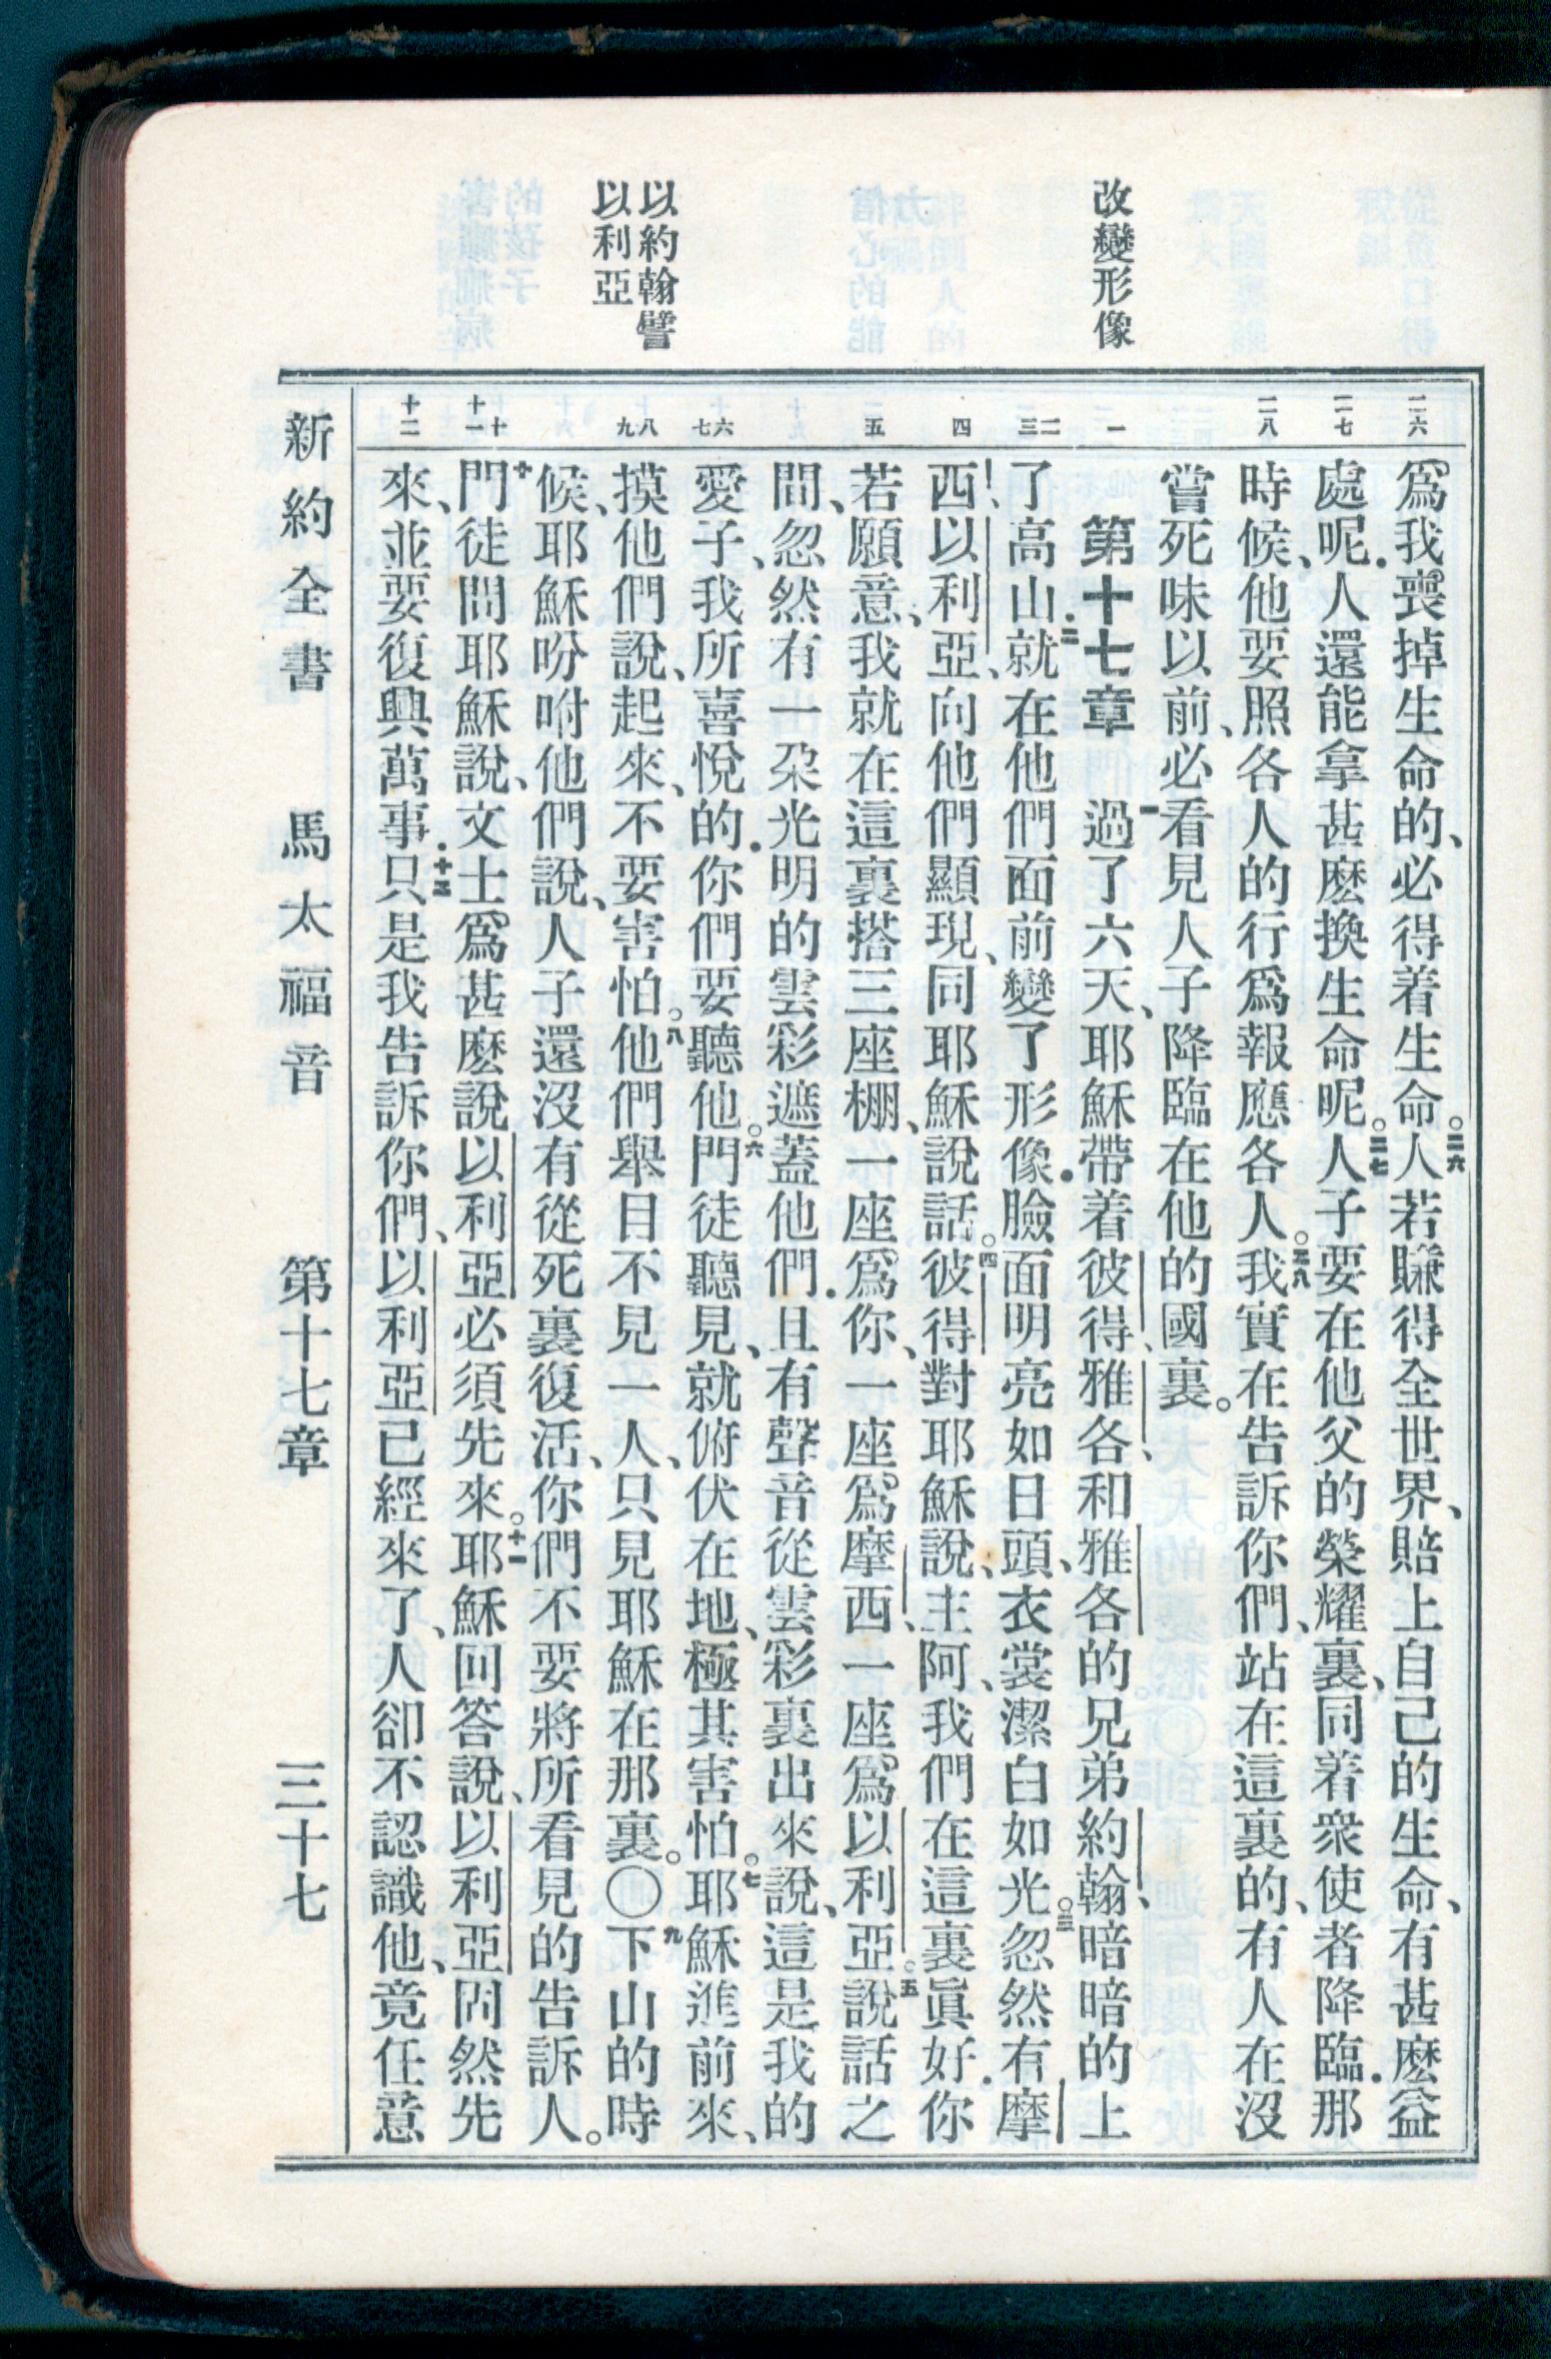 改變形像
以約翰譬
以利亞
二六
二七
二八
一
二三
四
五
六七
八九
十十一
十二
爲我喪掉生命的、必得着生命。二六人若賺得全世界、賠上自己的生命、有甚麽益
處呢．人還能拿甚麽換生命呢。二七人子要在他父的榮耀裏、同着衆使者降臨．那
時候、他要照各人的行爲報應各人。二八我實在告訴你們、站在這裏的、有人在沒
嘗死味以前、必看見人子降臨在他的國裏。
第十七章　一過了六天、耶穌帶着彼得、雅各、和雅各的兄弟約翰、暗暗的上
了高山．二就在他們面前變了形像．臉面明亮如日頭、衣裳潔白如光。三忽然有摩
西、以利亞、向他們顯現、同耶穌說話。四彼得對耶穌說、主阿、我們在這裏眞好．你
若願意、我就在這裏搭三座棚、一座爲你、一座爲摩西、一座爲以利亞。五說話之
間、忽然有一朶光明的雲彩遮蓋他們．且有聲音從雲彩裏出來說、這是我的
愛子、我所喜悅的．你們要聽他。六門徒聽見、就俯伏在地、極其害怕。七耶穌進前來、
摸他們說、起來、不要害怕。八他們舉目不見一人、只見耶穌在那裏。〇九下山的時
候、耶穌吩咐他們說、人子還沒有從死裏復活、你們不要將所看見的告訴人。
十門徒問耶穌說、文士爲甚麽說以利亞必須先來。十一耶穌回答說、以利亞固然先
來、並要復興萬事．十二只是我告訴你們、以利亞已經來了、人卻不認識他、竟任意
新約全書　馬太福音　第十七章　三十七